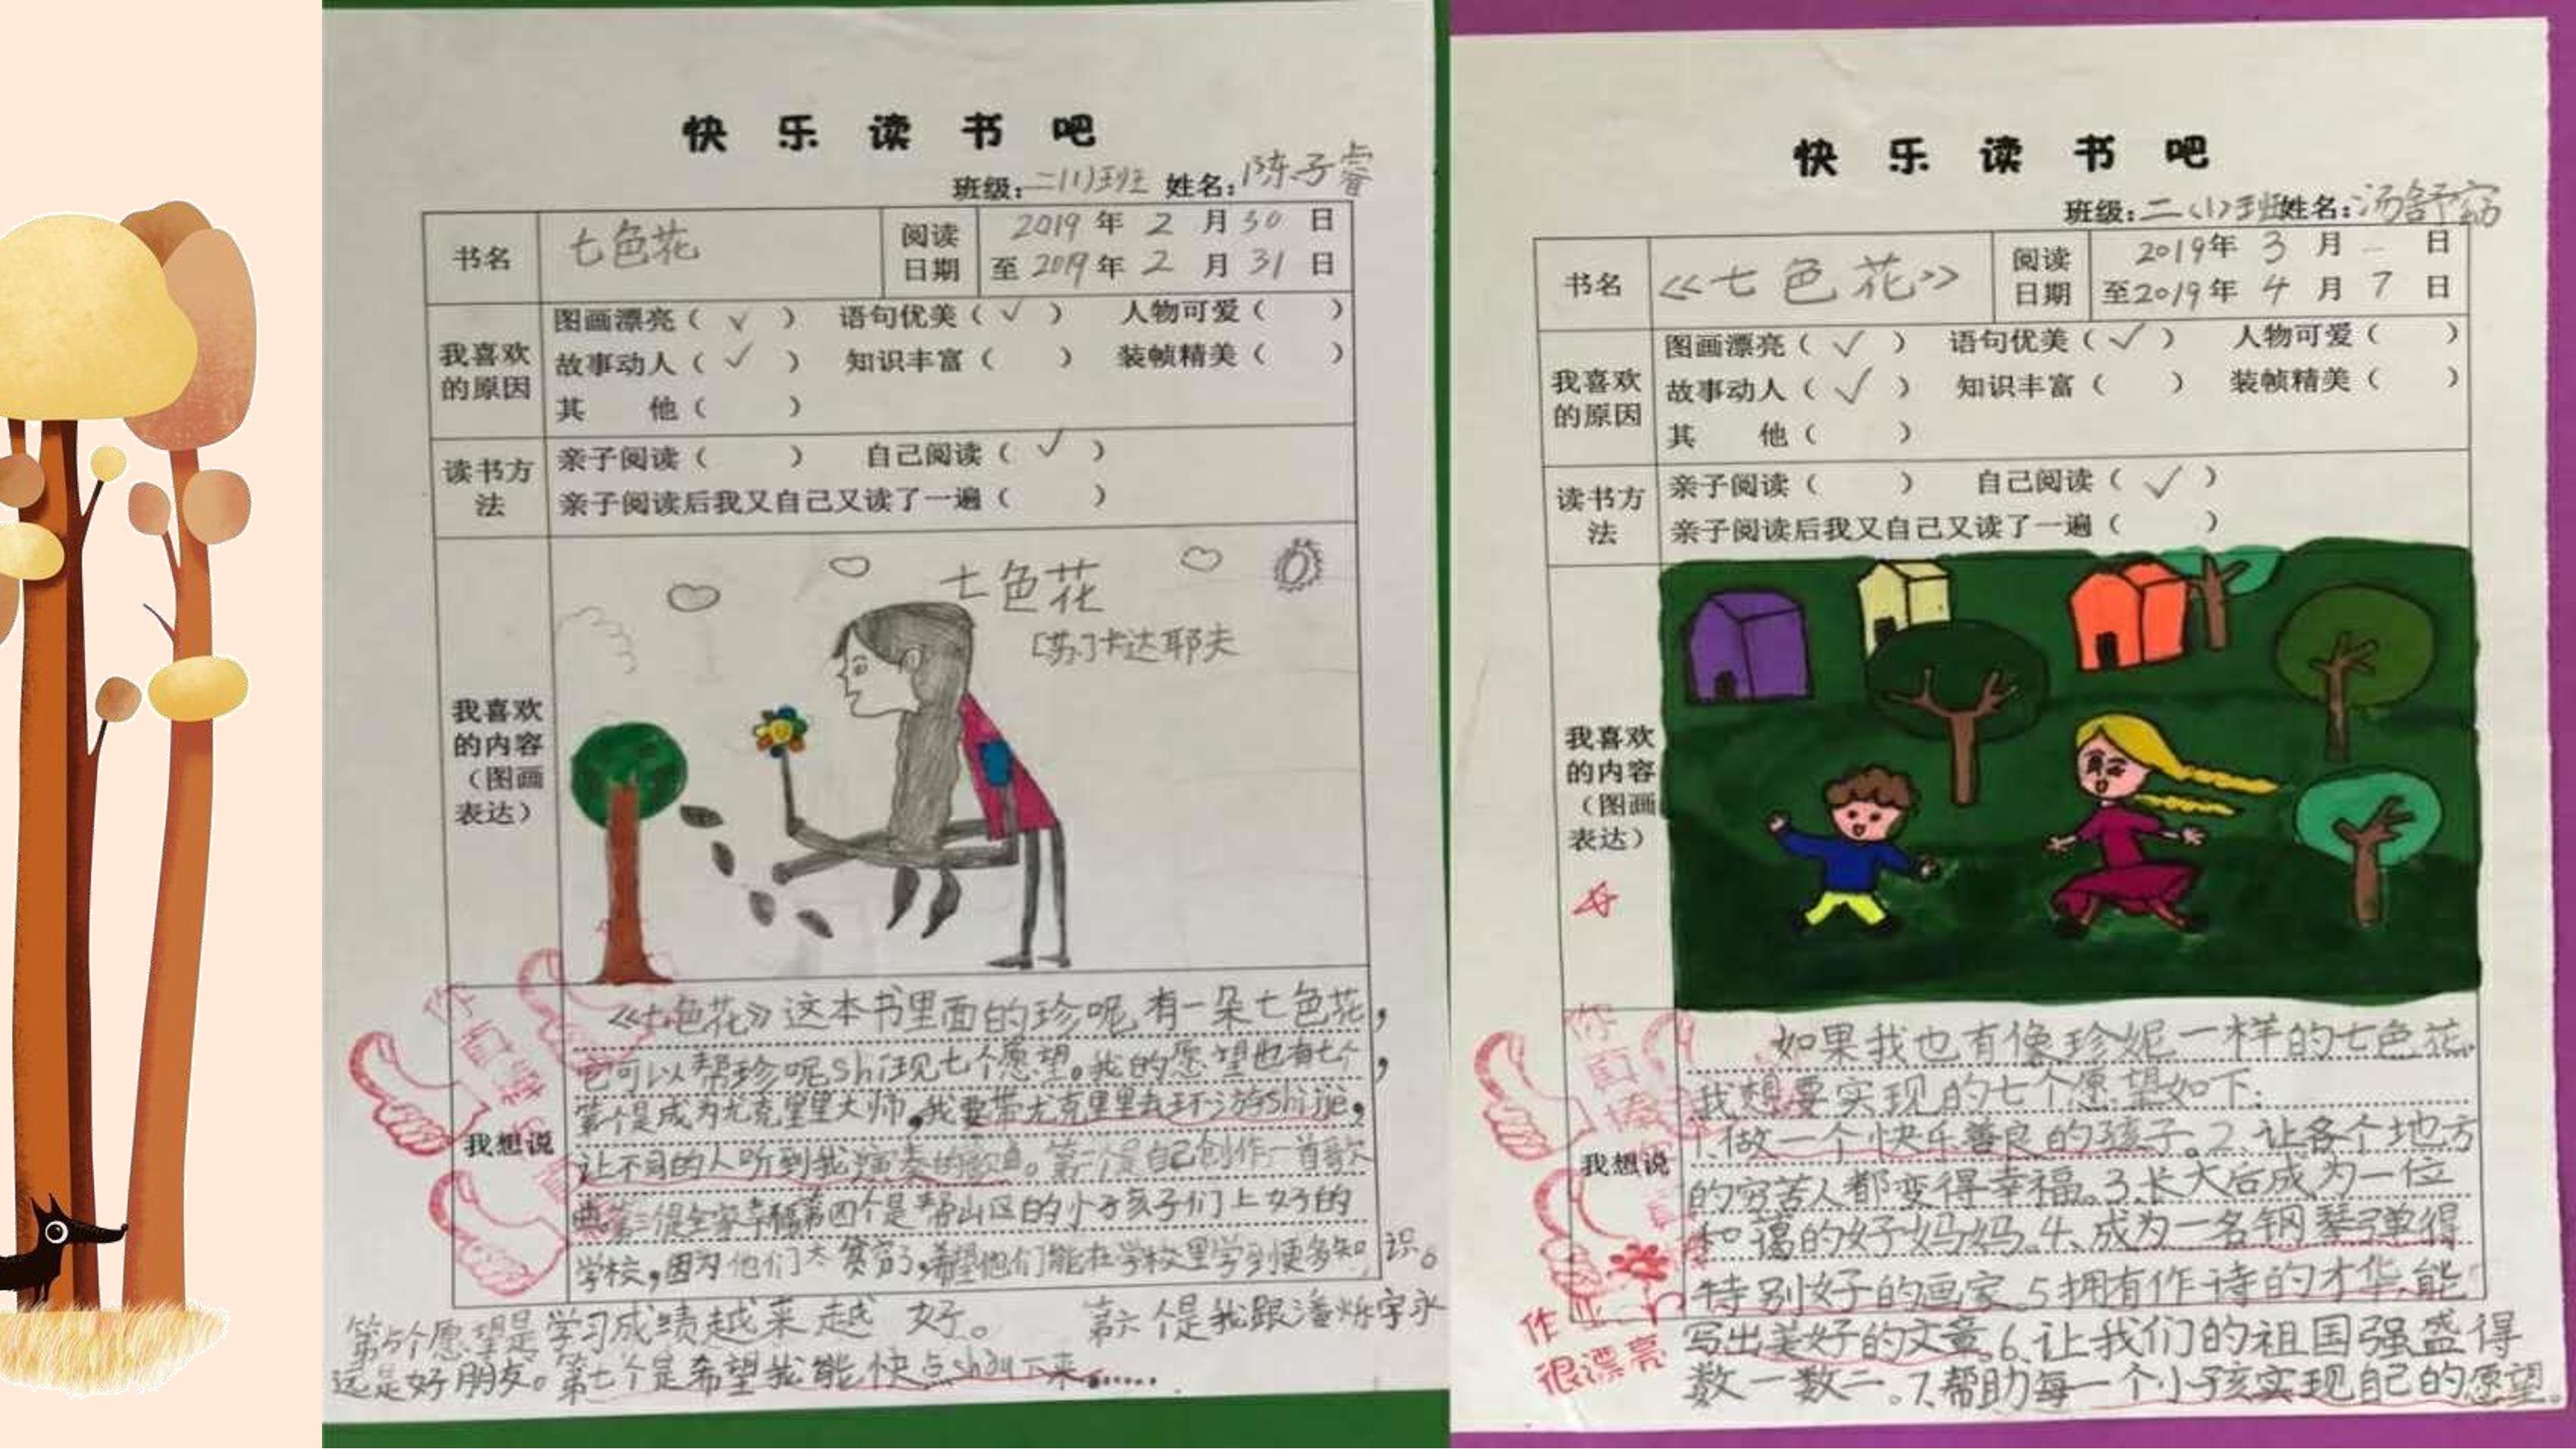 快乐读书吧
班级:二(1)班 姓名:陈子睿
书名
七色花
阅读
日期
2019年2月30日
至2019年2月31日
我喜欢
的原因
图画漂亮(√) 语句优美(√) 人物可爱( )
故事动人(√) 知识丰富( ) 装帧精美( )
其 他( )
读书方
法
亲子阅读( ) 自己阅读(√)
亲子阅读后我又自己又读了一遍( )
我喜欢
的内容
(图画
表达)
七色花
[苏]卡达耶夫
我想说
《七色花》这本书里面的珍呢有一朵七色花,
它可以帮珍呢shi现七个愿望。我的愿望也有七个,
第个是成为尤克里里大师,我要带尤克里里去环游shijie,
让不同的人听到我演奏的歌曲。第二个是自己创作一首歌
曲。第三得全家幸福第四个是帮山区的小孩子们上好的
学校,因为他们太贫穷了,希望他们能在学校里学到更多知识。
第5个愿望是学习成绩越来越好。 第六个是我跟潘烁宇永
远是好朋友。第七个是希望我能快点shou下来......
快乐读书吧
班级:二(1)班姓名:汤舒窈
书名
《七色花》
阅读
日期
2019年3月 日
至2019年4月7日
我喜欢
的原因
图画漂亮(√) 语句优美(√) 人物可爱( )
故事动人(√) 知识丰富( ) 装帧精美( )
其 他( )
读书方
法
亲子阅读( ) 自己阅读(√)
亲子阅读后我又自己又读了一遍( )
我喜欢
的内容
(图画
表达)
我想说
如果我也有像珍妮一样的七色花,
我想要实现的七个愿望如下:
1.做一个快乐善良的孩子。2、让各个地方
的穷苦人都变得幸福。3、长大后成为一位
和蔼的好妈妈。4、成为一名钢琴弹得
特别好的画家。5拥有作诗的才华,能
写出美好的文章。6、让我们的祖国强盛得
数一数二。7、帮助每一个小孩实现自己的愿望。
作业
很漂亮